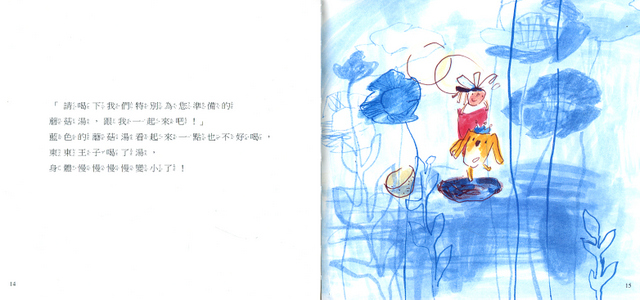 「請喝下我們特別為您準備的
蘑菇湯，跟我一起來吧！」
藍色的蘑菇湯看起來一點也不好喝，
東東王子喝了湯，
身體慢慢慢慢變小了！
14
15